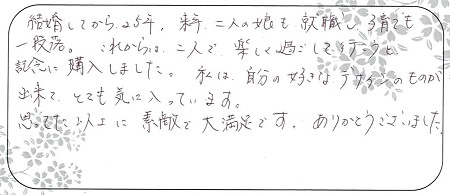 結婚してから25年。来年、二人の娘も就職し、子育ても
一段落。これからは、二人で楽しく過ごして行こうと
記念に購入しました。私は、自分の好きなデザインのものが
出来て、とても気に入っています。
思ってた以上に素敵で大満足です。ありがとうございました。